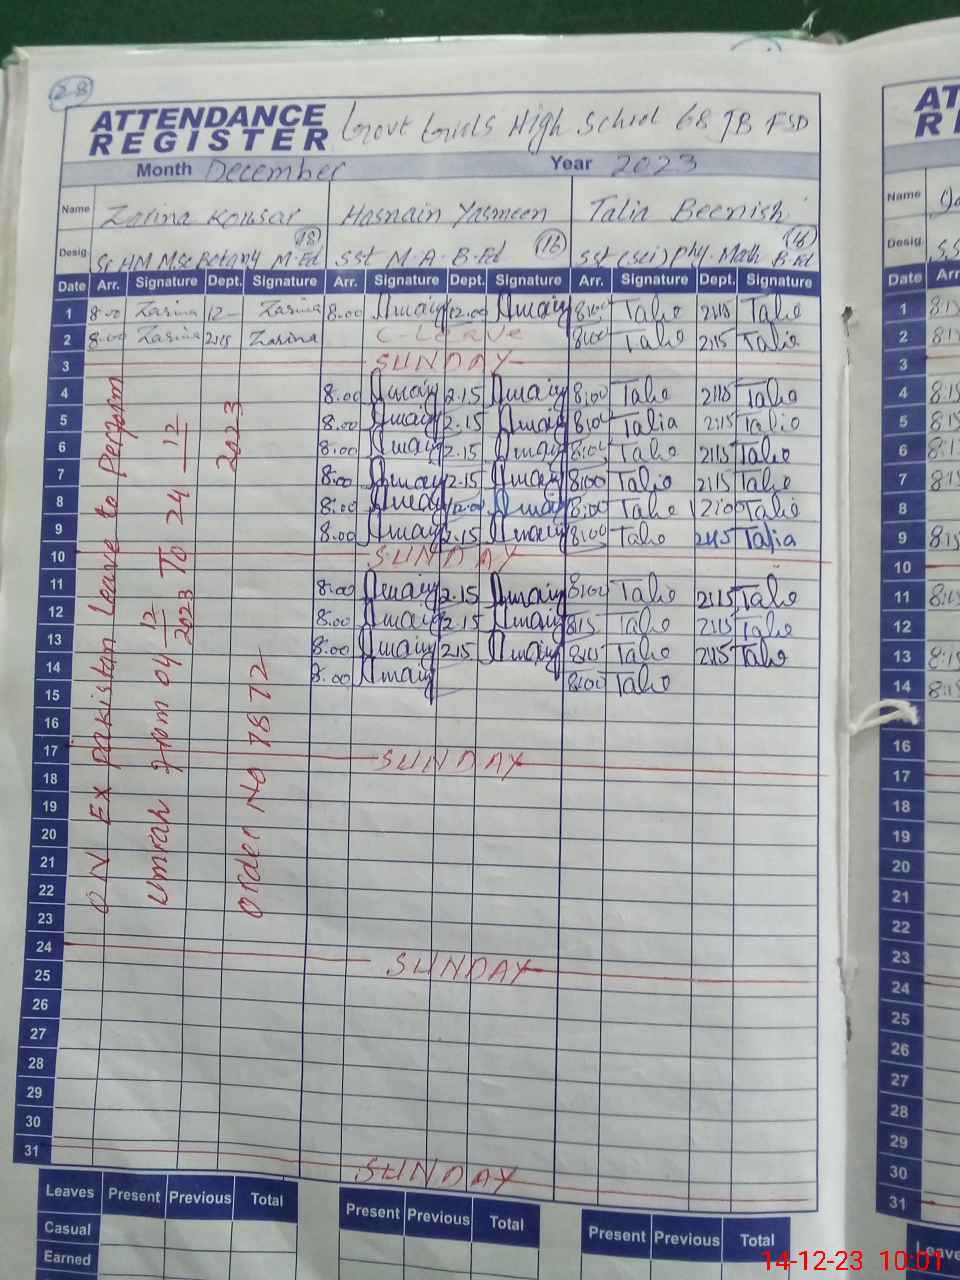 28
ATTENDANCE
REGISTER
Govt Girls High School 68 JB FSD
Month December Year 2023
Name Zarina Kousar Hasnain Yasmeen Talia Beenish
Desig. Sr HM Msc Botany M-Ed (18) SST M-A-B-Ed (16) SST (sci) Phy-Math B-Ed (16)
Date Arr. Signature Dept. Signature Arr. Signature Dept. Signature Arr. Signature Dept. Signature
1 8:00 Zarina 12- Zarina 8.00 12.00 8:00 Talia 2:15 Talia
2 8:00 Zarina 2:15 Zarina C-Leave 8:00 Talia 2:15 Talia
3 SUNDAY
4 8:00 2.15 8:00 Talia 2:15 Talia
5 8:00 2.15 8:00 Talia 2:15 Talia
6 8:00 2.15 8:05 Talia 2:15 Talia
7 8:00 2.15 8:00 Talia 2:15 Talia
8 8:00 12:00 8:00 Talia 12:00 Talia
9 8:00 2.15 8:00 Talia 2:15 Talia
10 SUNDAY
11 8:00 2.15 8:00 Talia 2:15 Talia
12 8:00 2.15 8:15 Talia 2:15 Talia
13 8:00 2.15 Talia 2:15 Talia
14 8:00 8:00 Talia
15
16
17 SUNDAY
18
19
20
21
22
23
24 SUNDAY
25
26
27
28
29
30
31 SUNDAY
ON EX Pakistan Leave to Perform
Umrah from 04-12-2023 To 24-12-2023
Order No 7872
Leaves Present Previous Total Present Previous Total Present Previous Total
Casual
Earned
Name
Desig.
Date Arr
1
2
3
4
5
6
7
8
9
10
11
12
13
14
16
17
18
19
20
21
22
23
24
25
26
27
28
29
30
31
Leave
14-12-23 10:01